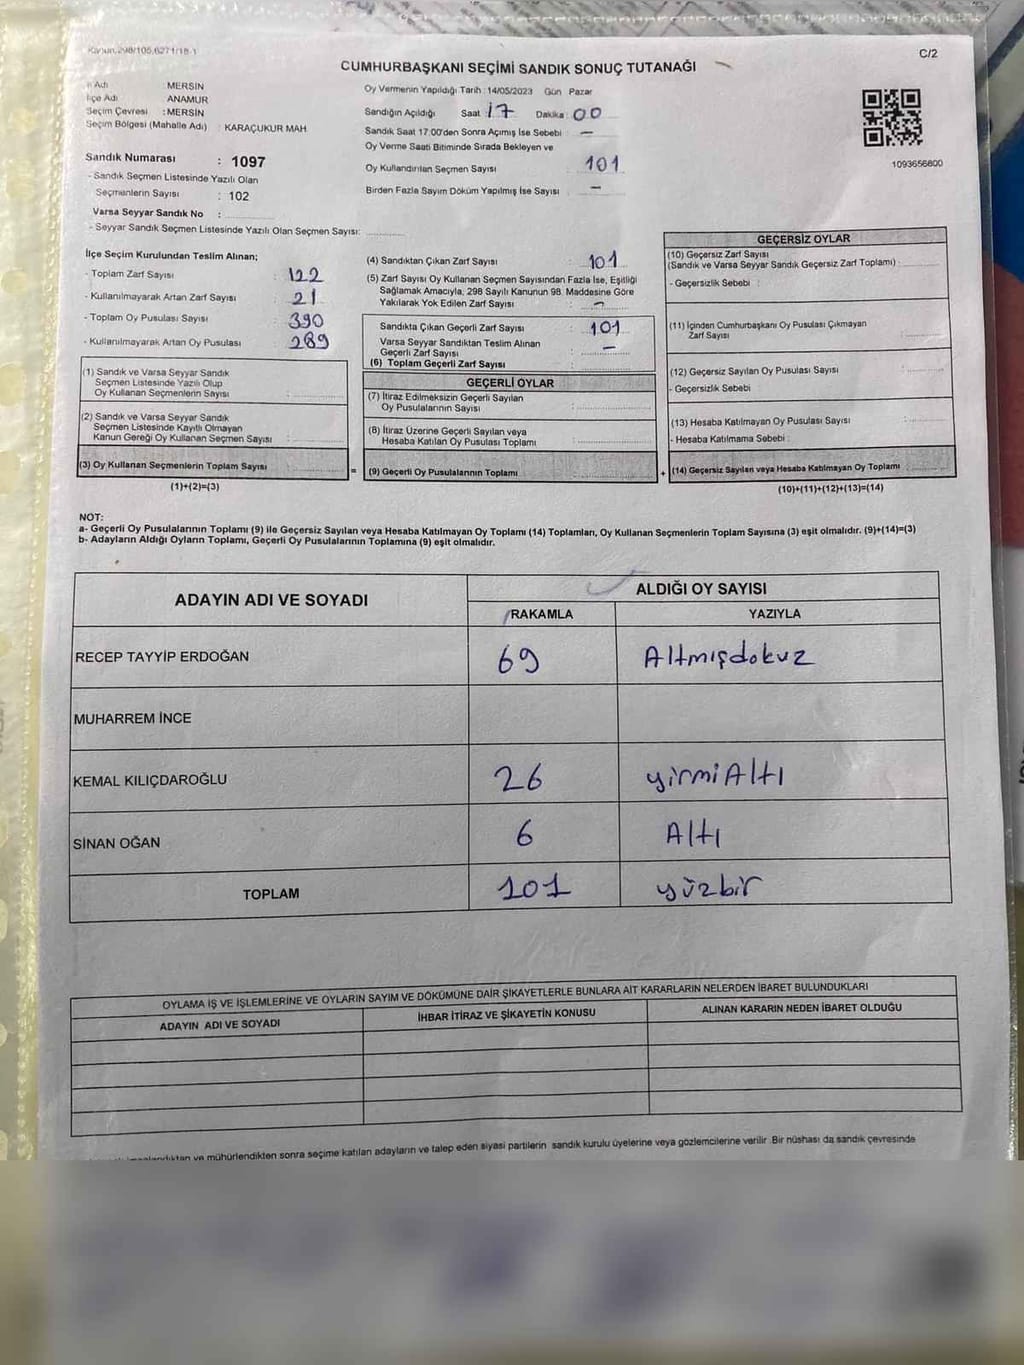 Kanun.298/105,6271/18-1
C/2
CUMHURBAŞKANI SEÇİMİ SANDIK SONUÇ TUTANAĞI
İl Adı MERSİN
İlçe Adı ANAMUR
Seçim Çevresi : MERSİN
Seçim Bölgesi (Mahalle Adı) : KARAÇUKUR MAH
Sandık Numarası : 1097
- Sandık Seçmen Listesinde Yazılı Olan
Seçmenlerin Sayısı : 102
Varsa Seyyar Sandık No :
- Seyyar Sandık Seçmen Listesinde Yazılı Olan Seçmen Sayısı:
Oy Vermenin Yapıldığı Tarih : 14/05/2023 Gün Pazar
Sandığın Açıldığı Saat : 17 Dakika : 00
Sandık Saat 17:00'den Sonra Açımış İse Sebebi : -
Oy Verme Saati Bitiminde Sırada Bekleyen ve
Oy Kullandırılan Seçmen Sayısı : 101
Birden Fazla Sayım Döküm Yapılmış İse Sayısı : -
1093656800
İlçe Seçim Kurulundan Teslim Alınan;
- Toplam Zarf Sayısı : 122
- Kullanılmayarak Artan Zarf Sayısı : 21
- Toplam Oy Pusulası Sayısı : 390
- Kullanılmayarak Artan Oy Pusulası : 289
(1) Sandık ve Varsa Seyyar Sandık
Seçmen Listesinde Yazılı Olup
Oy Kullanan Seçmenlerin Sayısı :
(2) Sandık ve Varsa Seyyar Sandık
Seçmen Listesinde Kayıtlı Olmayan
Kanun Gereği Oy Kullanan Seçmen Sayısı :
(3) Oy Kullanan Seçmenlerin Toplam Sayısı :
(1)+(2)=(3)
(4) Sandıktan Çıkan Zarf Sayısı : 101
(5) Zarf Sayısı Oy Kullanan Seçmen Sayısından Fazla İse, Eşitliği
Sağlamak Amacıyla, 298 Sayılı Kanunun 98. Maddesine Göre
Yakılarak Yok Edilen Zarf Sayısı : -
Sandıkta Çıkan Geçerli Zarf Sayısı : 101
Varsa Seyyar Sandıktan Teslim Alınan
Geçerli Zarf Sayısı : -
(6) Toplam Geçerli Zarf Sayısı :
GEÇERLİ OYLAR
(7) İtiraz Edilmeksizin Geçerli Sayılan
Oy Pusulalarının Sayısı :
(8) İtiraz Üzerine Geçerli Sayılan veya
Hesaba Katılan Oy Pusulası Toplamı :
= (9) Geçerli Oy Pusulalarının Toplamı :
GEÇERSİZ OYLAR
(10) Geçersiz Zarf Sayısı
(Sandık ve Varsa Seyyar Sandık Geçersiz Zarf Toplamı) :
- Geçersizlik Sebebi :
(11) İçinden Cumhurbaşkanı Oy Pusulası Çıkmayan
Zarf Sayısı :
(12) Geçersiz Sayılan Oy Pusulası Sayısı :
- Geçersizlik Sebebi
(13) Hesaba Katılmayan Oy Pusulası Sayısı :
- Hesaba Katılmama Sebebi :
+ (14) Geçersiz Sayılan veya Hesaba Katılmayan Oy Toplamı :
(10)+(11)+(12)+(13)=(14)
NOT:
a- Geçerli Oy Pusulalarının Toplamı (9) ile Geçersiz Sayılan veya Hesaba Katılmayan Oy Toplamı (14) Toplamları, Oy Kullanan Seçmenlerin Toplam Sayısına (3) eşit olmalıdır. (9)+(14)=(3)
b- Adayların Aldığı Oyların Toplamı, Geçerli Oy Pusulalarının Toplamına (9) eşit olmalıdır.
ADAYIN ADI VE SOYADI ALDIĞI OY SAYISI
RAKAMLA YAZIYLA
RECEP TAYYİP ERDOĞAN 69 Altmışdokuz
MUHARREM İNCE
KEMAL KILIÇDAROĞLU 26 yirmiAltı
SİNAN OĞAN 6 Altı
TOPLAM 101 yüzbir
OYLAMA İŞ VE İŞLEMLERİNE VE OYLARIN SAYIM VE DÖKÜMÜNE DAİR ŞİKAYETLERLE BUNLARA AİT KARARLARIN NELERDEN İBARET BULUNDUKLARI
ADAYIN ADI VE SOYADI İHBAR İTİRAZ VE ŞİKAYETİN KONUSU ALINAN KARARIN NEDEN İBARET OLDUĞU
ve mühürlendikten sonra seçime katılan adayların ve talep eden siyasi partilerin sandık kurulu üyelerine veya gözlemcilerine verilir .Bir nüshası da sandık çevresinde